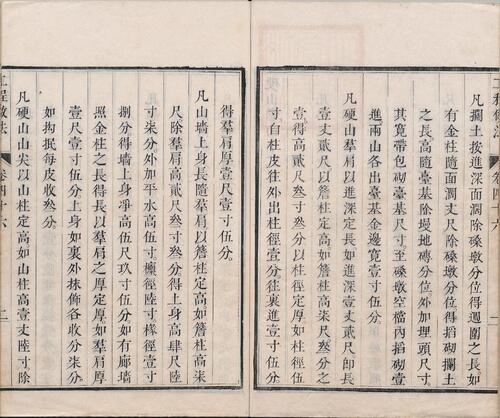 工程做法 卷四十六
凡攔土按進深面濶除磉墩分位得週圍之長如
有金柱隨面濶丈尺除磉墩分位得搯砌攔土
之長高隨臺基除墁地磚分位外加埋頭尺寸
其寬帶包砌臺基尺寸至磉墩空檔內搯砌壹
進兩山各出臺基金邊寬壹寸伍分
凡硬山羣肩以進深定長如進深壹丈貳尺卽長
壹丈貳尺以簷柱定高如簷柱高柒尺叁分之
壹得高貳尺叁寸叁分以山柱定厚如山柱徑伍
寸自柱皮往外出柱徑壹分往裏進壹寸伍分
得羣肩厚壹尺壹寸伍分
凡山墻上身長隨羣肩以簷柱定高如簷柱高柒
尺除羣肩高貳尺叁寸叁分得上身高肆尺陸
寸柒分外加平水高伍寸檁徑陸寸椽徑壹寸
捌分得山墻上身凈高伍尺玖寸伍分如有廊墻
照金柱之長得長以羣肩之厚定厚如羣肩厚
壹尺壹寸伍分上身如裏外抹飾各收分柒分
如抅抿每皮收叁分
凡硬山山尖以山柱定高如山柱高壹丈陸寸除
工程做法 卷四十六 二